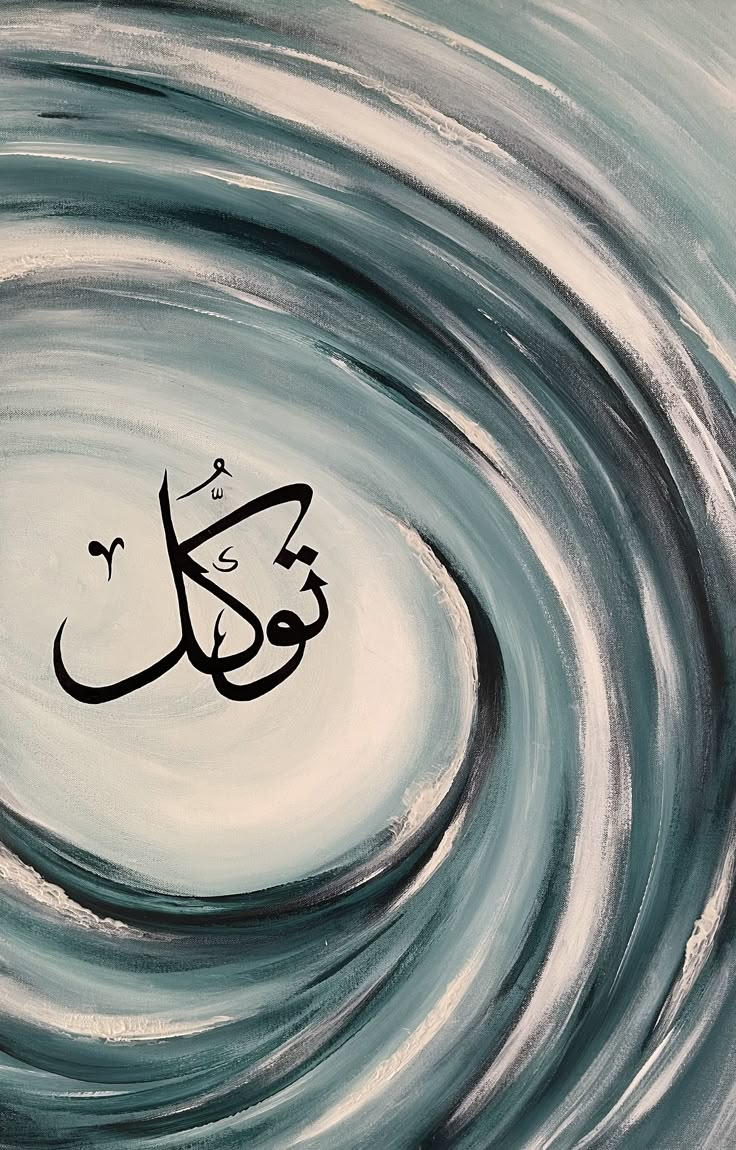 توكُّل